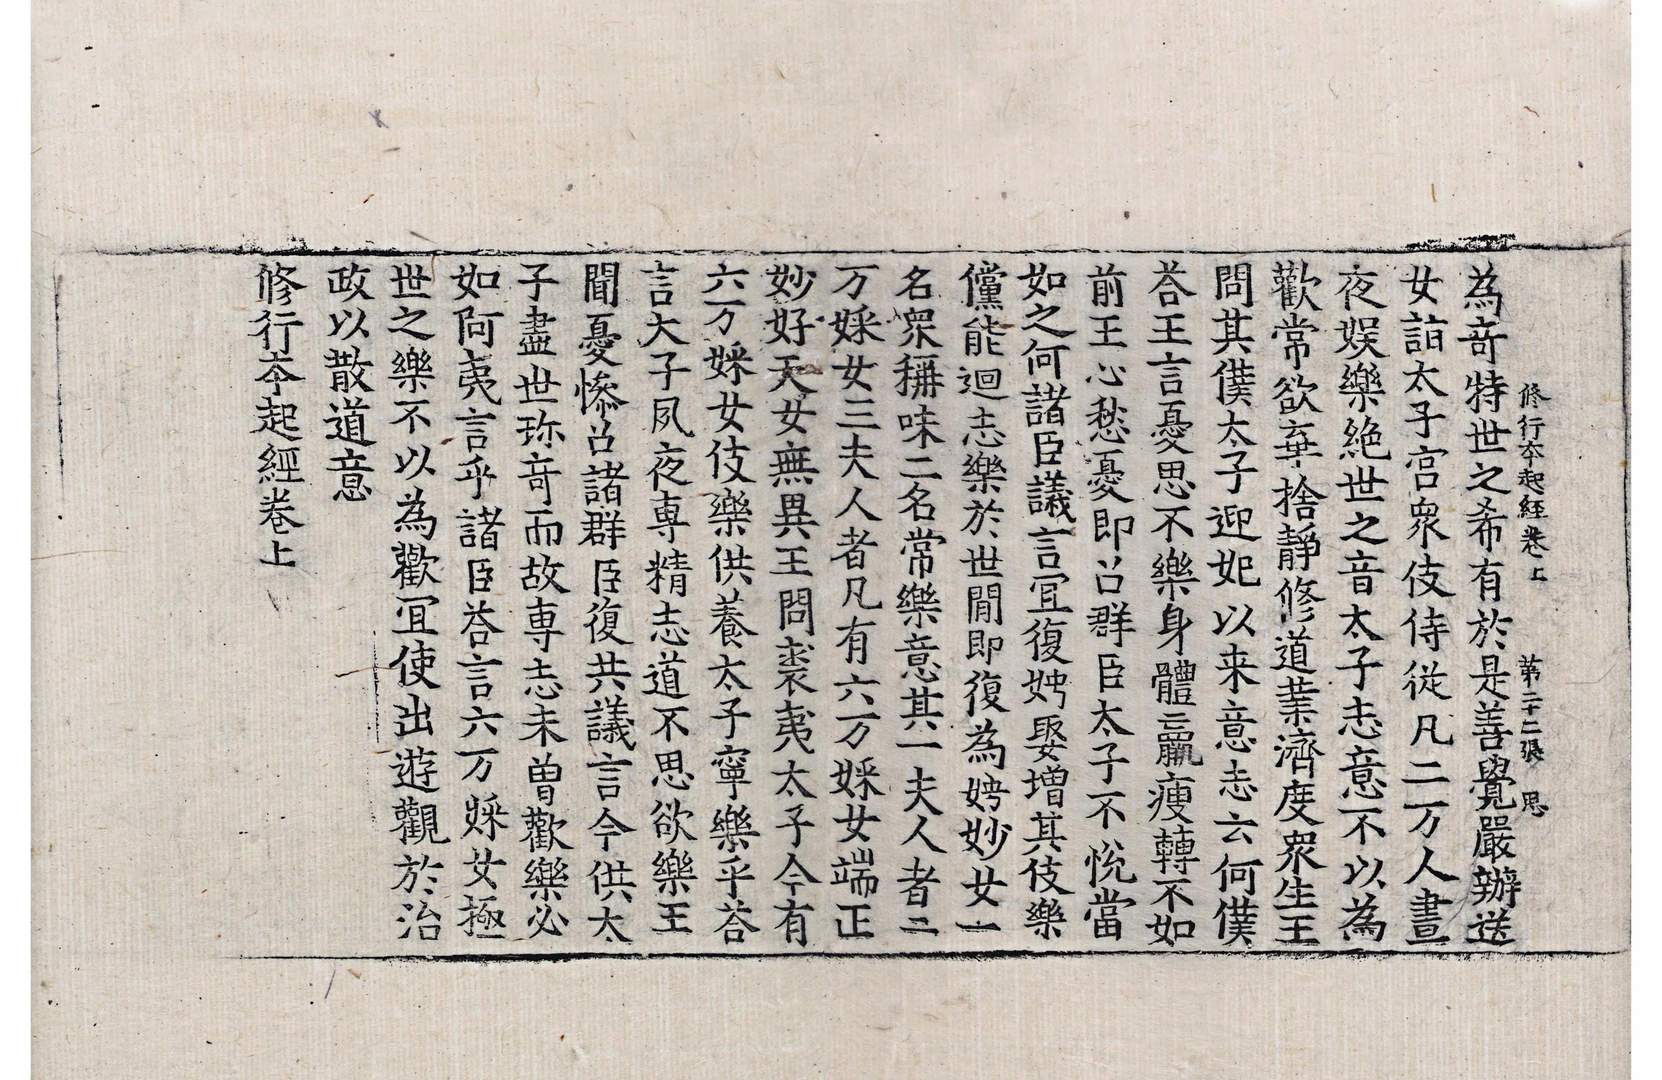 修行夲起經卷上 第二十二張 思
為竒特世之希有於是善覺嚴辦送
女詣太子宮衆伎侍從凡二万人晝
夜娱樂絶世之音太子志意不以為
歡常欲棄捨靜修道業濟度衆生王
問其僕太子迎妃以来意志云何僕
荅王言憂思不樂身體羸瘦轉不如
前王心愁憂即召群臣太子不悅當
如之何諸臣議言冝復娉娶增其伎樂
儻能迴志樂於世閒即復為娉妙女一
名衆稱味二名常樂意其一夫人者二
万婇女三夫人者凡有六万婇女端正
妙好天女無異王問裘夷太子今有
六万婇女伎樂供養太子寧樂乎荅
言大子夙夜専精志道不思欲樂王
聞憂慘召諸群臣復共議言今供太
子盡世珎竒而故専志未曽歡樂必
如阿夷言乎諸臣荅言六万婇女極
世之樂不以為歡冝使出遊觀於治
政以散道意
修行夲起經卷上